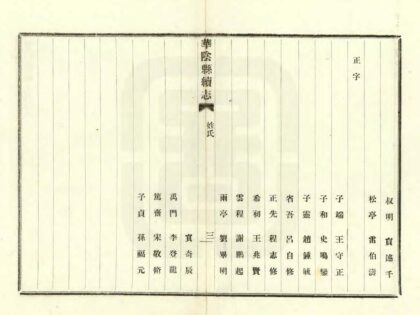 叔明 竇遠千
松亭 雷伯濤
正字
子端 王守正
子和 史鳴鑾
子靈 趙鍾毓
省吾 呂自修
正先 程志修
希初 王兆賢
雲程 謝鵬起
雨亭 劉畢明
華陰縣續志
姓氏
三
竇奇辰
禹門 李登龍
篤齋 宋敬脩
子貞 孫福元